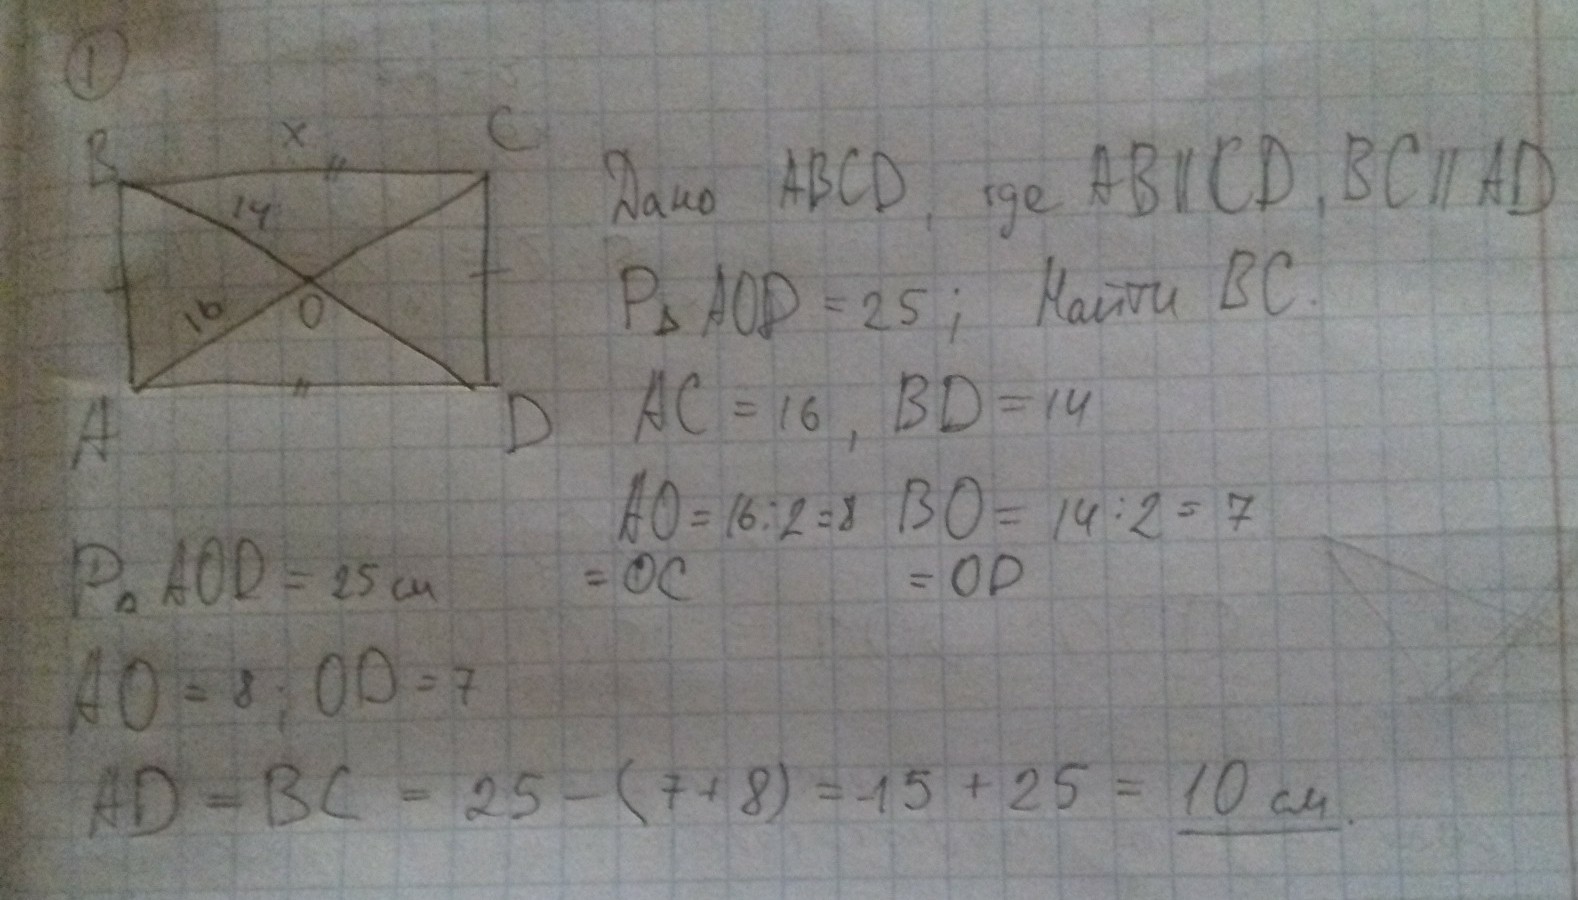 1
B x C
14
16 O
A D
Дано ABCD, где AB||CD, BC||AD
P△ AOD = 25; Найти BC.
AC = 16, BD = 14
AO = 16:2 = 8 BO = 14:2 = 7
= OC = OD
P△ AOD = 25 см
AO = 8; OD = 7
AD = BC = 25 - (7+8) = -15 + 25 = 10 см.